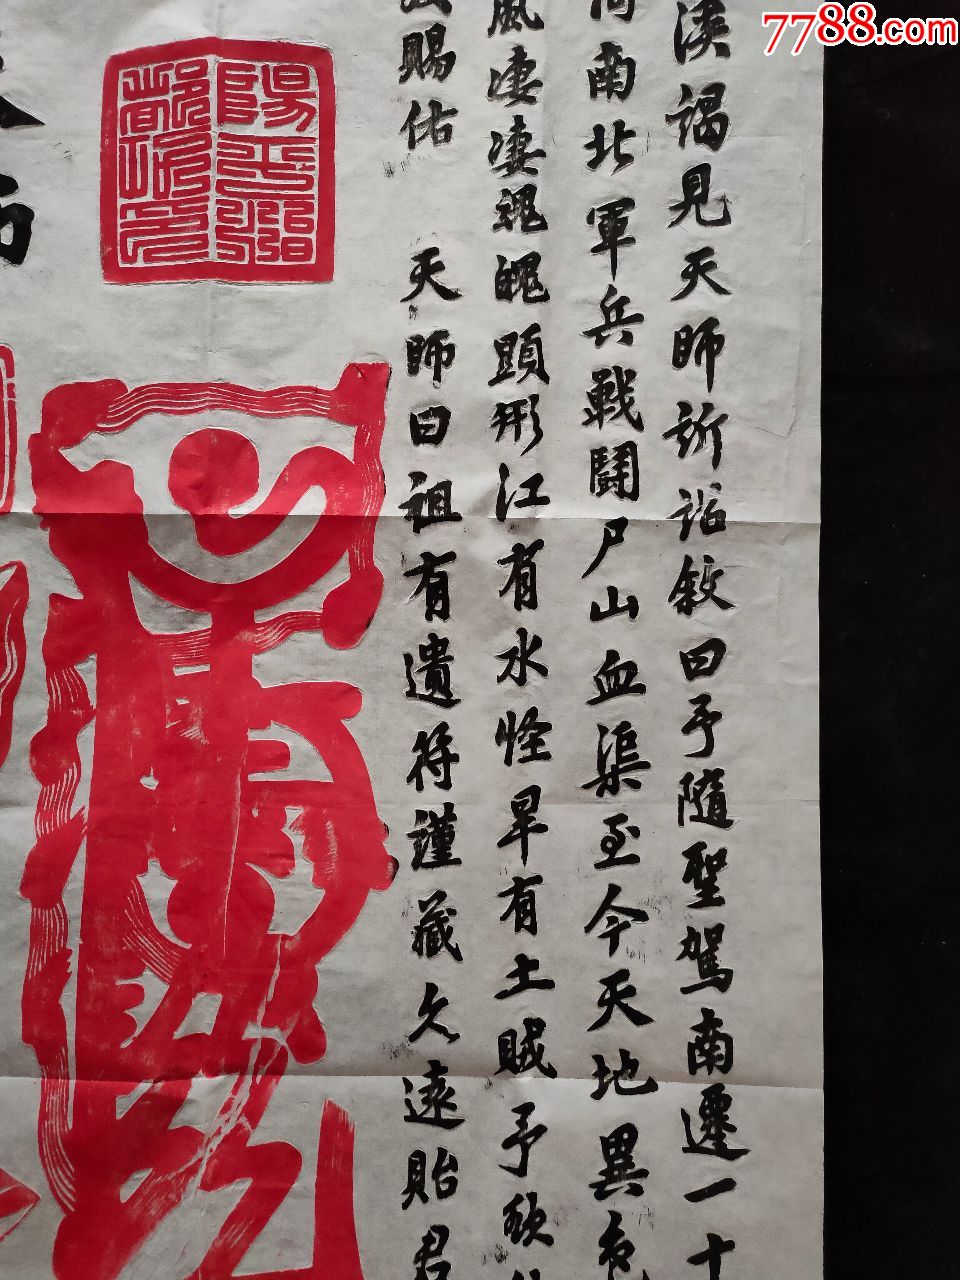 7788.com
渙謁見天師訢諮敘曰予隨聖駕南遷一十
南北軍兵戰鬪尸山血渠至今天地異
風淒淒魂魄顕形江有水怪旱有土賊予欲
賜佑 天師曰祖有遺符謹藏久遠貽君
陽平治都功印